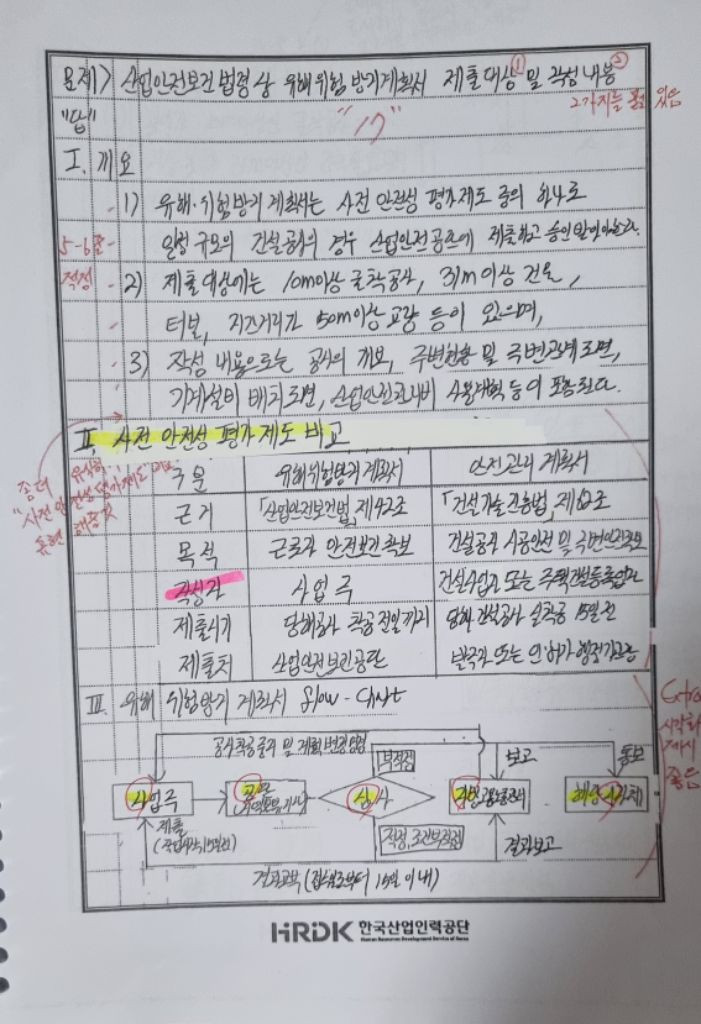 문제1) 산업안전보건법령상 유해위험방지계획서 제출대상① 및 작성내용②
2가지를 묻고 있음
"답"
"17"
I. 개요
1) 유해·위험방지계획서는 사전 안전성 평가제도 중의 하나로
5-6줄
일정 규모의 건설공사의 경우 산업안전공단에 제출하고 승인받아야한다.
적정
2) 제출대상에는 10m이상 굴착공사, 31m이상 건물,
터널, 지간거리가 50m이상 교량 등이 있으며,
3) 작성 내용으로는 공사의 개요, 주변현황 및 주변관계도면,
기계설비 배치도면, 산업안전관리비 사용계획 등이 포함된다.
II. 사전 안전성 평가제도 비교
좀더 유식하게
"사전 안전성 평가제도"
표현 해준것
구분 유해위험방지계획서 안전관리계획서
근거 「산업안전보건법」 제42조 「건설기술진흥법」 제62조
목적 근로자 안전보건확보 건설공사 시공안전 및 주변안전확보
작성자 사업주 건설사업자 또는 주택건설등록업자
제출시기 당해공사 착공전일까지 당해 건설공사 실착공 15일전
제출처 산업안전보건공단 발주자 또는 인허가 행정기관장
III. 유해위험방지계획서 flow-chart
시각화
제시
좋음
공사착공중지 및 계획변경명령
부적정 보고 통보
사업주 공단 심사 지방고용노동관서 해당지자체
제출
적정, 조건부적정 결과보고
결과교부 (접수일로부터 15일 이내)
HRDK 한국산업인력공단
Human Resources Development Service of Korea